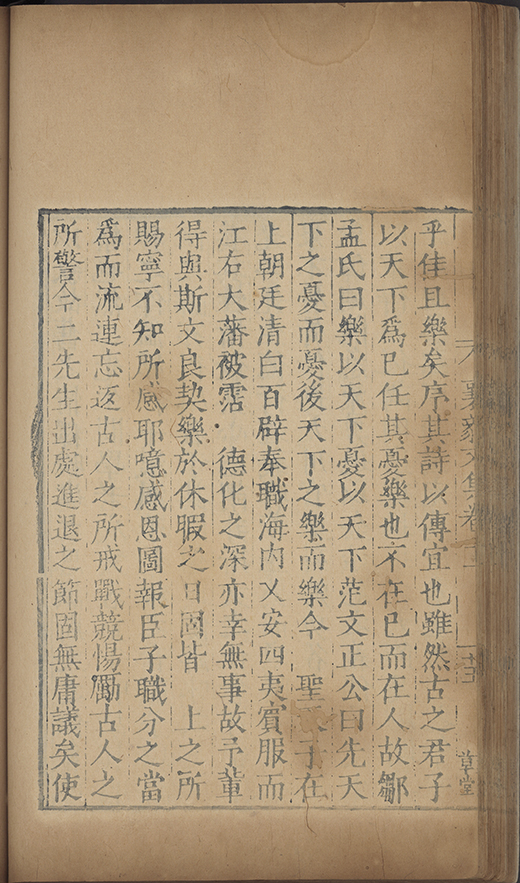 襄毅文集卷
草堂
乎佳且樂矣序其詩以傳宜也雖然古之君子
以天下爲已任其憂樂也不在已而在人故鄒
孟氏曰樂以天下憂以天下范文正公曰先天
下之憂而憂後天下之樂而樂今　聖子在
上朝廷清白百辟奉職海内乂安四夷賓服而
江右大藩被霑　德化之深亦幸無事故予輩
得與斯文良契樂於休暇之日固皆　上之所
賜寧不知所感耶噫感恩圖報臣子職分之當
爲而流連忘返古人之所戒戰競惕勵古人之
所警今二先生出處進退之節固無庸議矣使